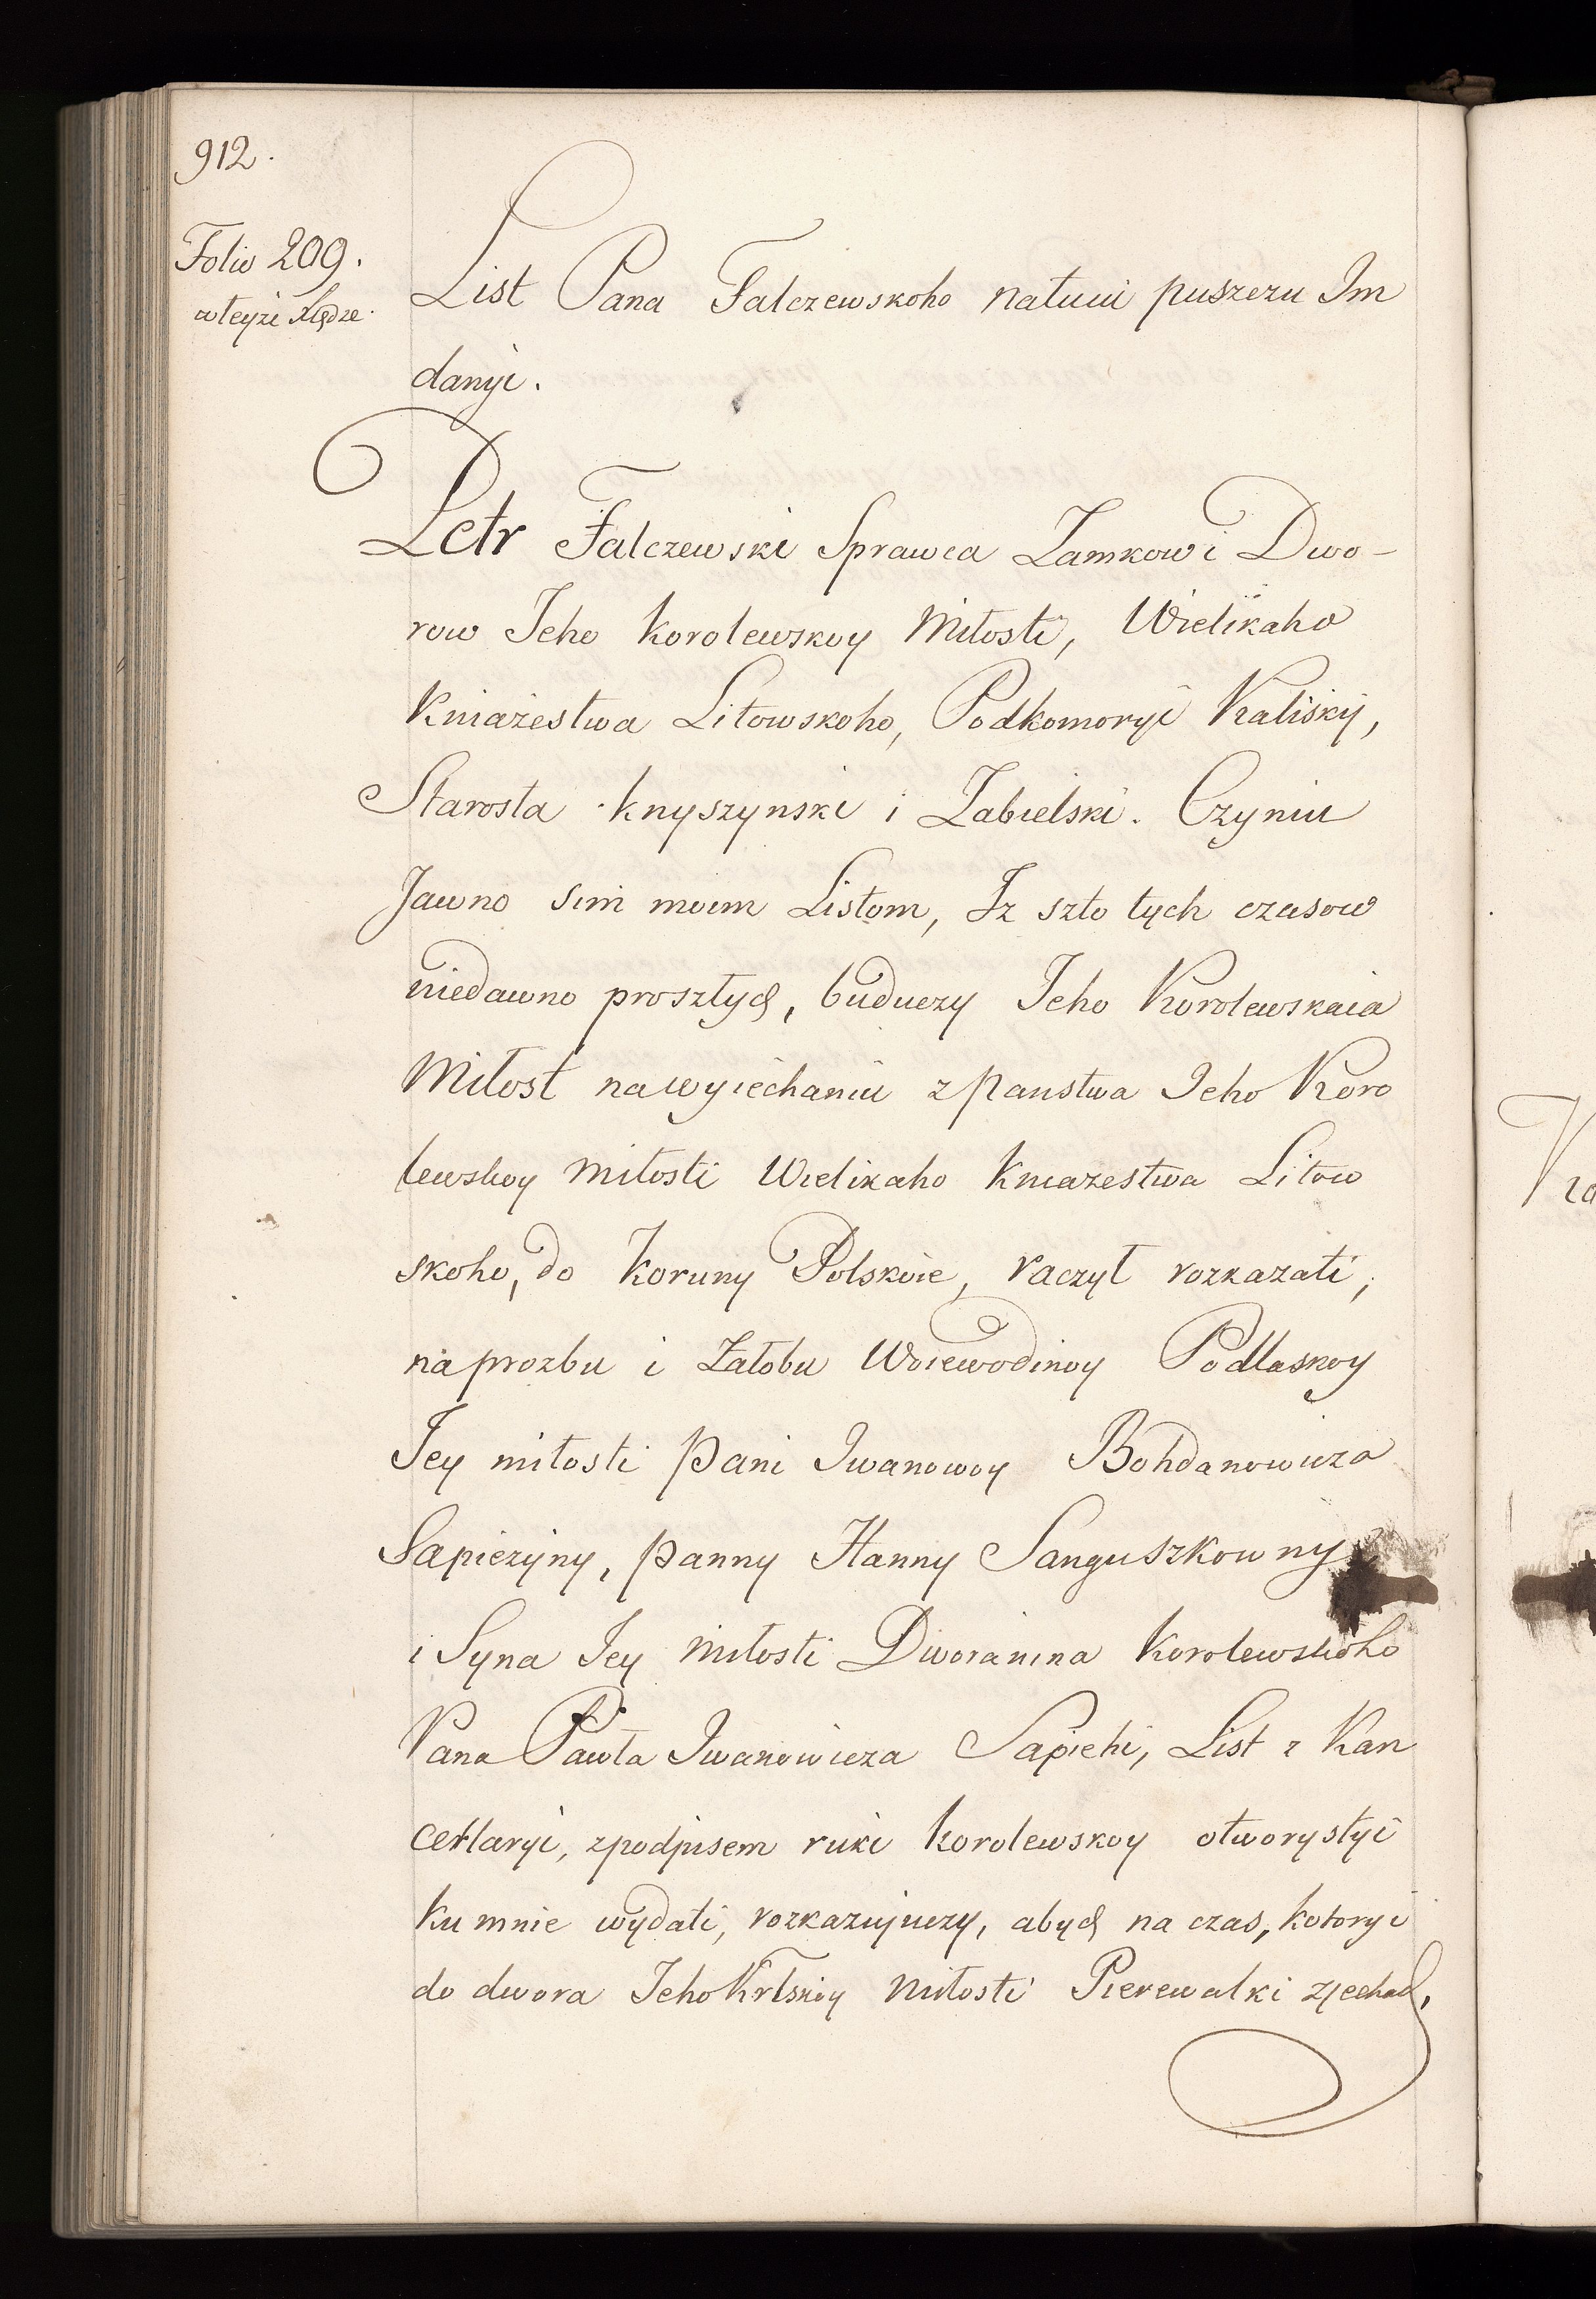 912.
Folio 209.
wteyże Xiędze.
List Pana Falczewskoho natuiu puszczu Im
danyi.
Petr Falczewski Sprawca Zamkow i Dwo-
row Jeho Korolewskoy Miłosti, Wielikaho
Kniażestwa Litowskoho, Podkomoryi Kaliskij,
Starosta Knyszynski i Łabielski. Czyniu
Jawno sim moim Listom, Iz szto tych czasow
niedawno proszłych, buduczy Jeho Korolewskaia
Miłost nawyiechaniu z Panstwa Jeho Koro
lewskoy Miłosti Wielikaho Kniażestwa Litow
skoho, do Koruny Polskoie, raczył rozkazati,
na prozbu i Załobu Woiewodinoy Podlaskoy
Jey miłosti Pani Iwanowoy Bohdanowicza
Sapieżyny, Panny Hanny Sanguszkowny
i Syna Jey Miłosti Dworanina Korolewskoho
Pana Pawła Iwanowicza Sapiehi, List z Kan
cellaryi, zpodpisem ruki Korolewskoy otworystyi
ku mnie wydati, rozkazujuczy, abych na czas, kotoryi
do dwora Jeho Krlskoy Miłosti Pierewałki zjechał,